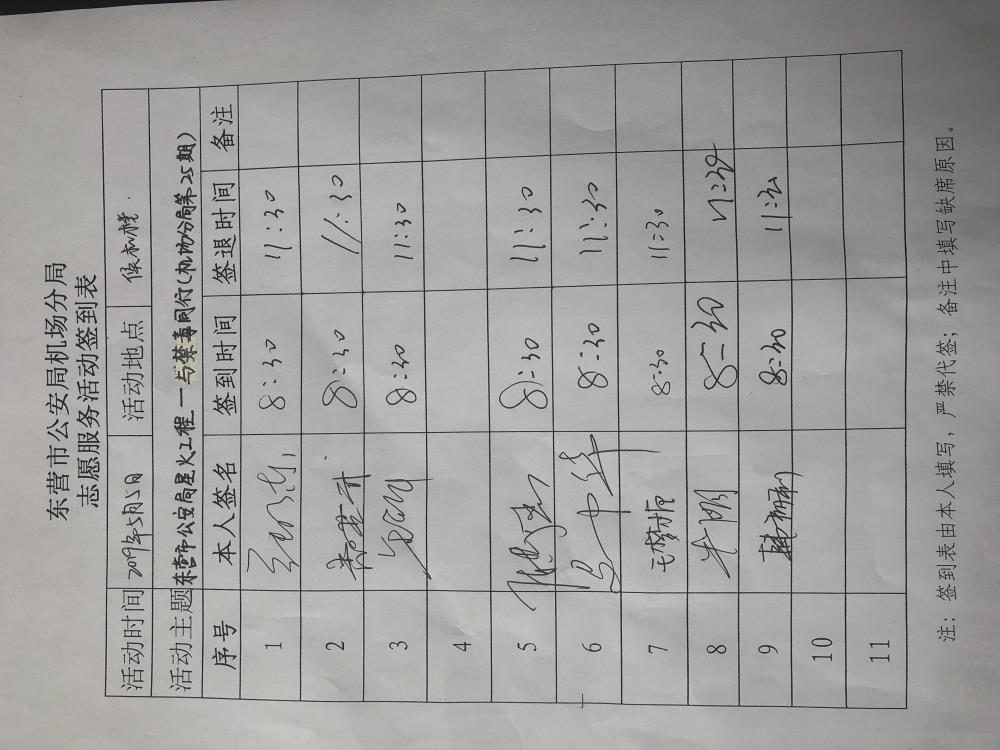 东营市公安局机场分局
志愿服务活动签到表
活动时间 2019年5月5日 活动地点
活动主题 东营市公安局星火工程—与禁毒同行(机场分局第25期)
序号 本人签名 签到时间 签退时间 备注
1 8:30 11:30
2 8:30 11:30
3 8:30 11:30
4
5 8:30 11:30
6 8:30 11:30
7 8:30 11:30
8 朱明 8:30 11:30
9 8:30 11:30
10
11
注:签到表由本人填写,严禁代签;备注中填写缺席原因。